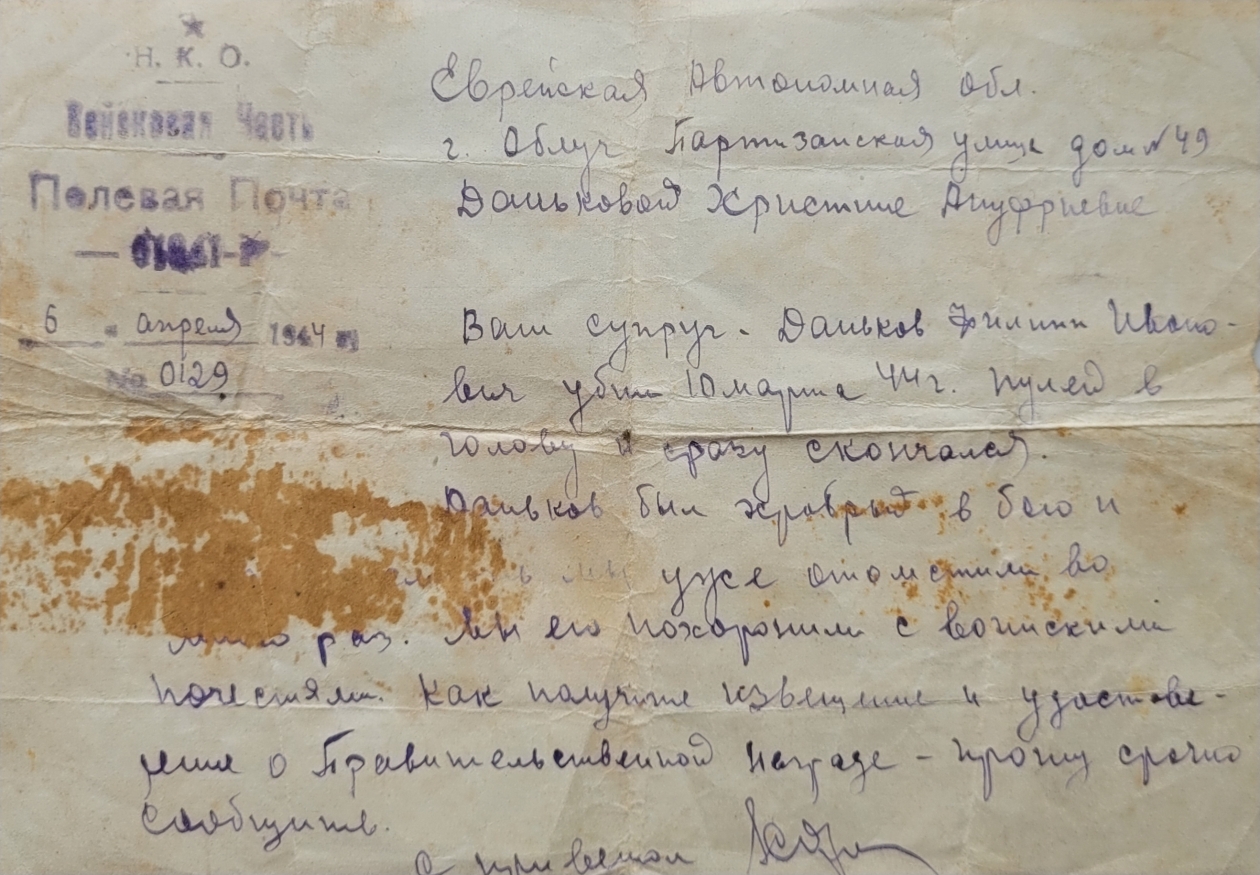 Н. К. О.
Войсковая Часть
Полевая Почта
6 апреля 1944
№ 0129
Еврейская Автономная обл.
г. Облуч Партизанская улица дом № 49
Даньковой Христине Ануфриевне
Ваш супруг - Даньков Филипп Ивано-
вич убит 10 марта 44 г. пулей в
голову и сразу скончался.
Даньков был храбрый в бою и
мы уже отомстили во
много раз. Мы его похоронили с воинскими
почестями. Как получите извещение и удостове-
рение о Правительственной награде - прошу срочно
сообщить.
С приветом